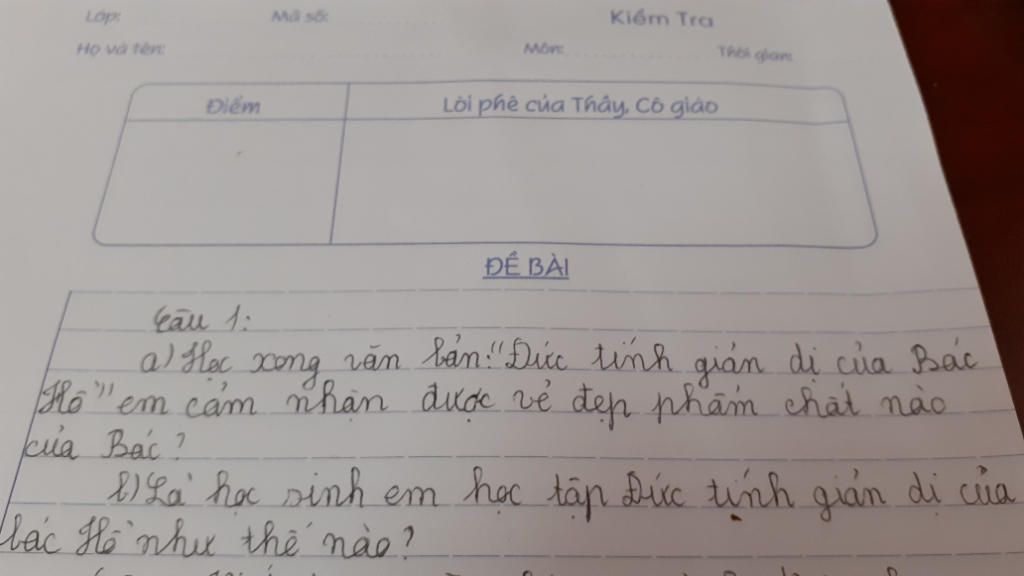 Lớp: Mã số: Kiểm Tra
Họ và tên: Môn: Thời gian:
Điểm Lời phê của Thầy, Cô giáo
ĐỀ BÀI
Câu 1:
a) Học xong văn bản: "Đức tính giản dị của Bác
Hồ" em cảm nhận được vẻ đẹp phẩm chất nào
của Bác?
b) Là học sinh em học tập Đức tính giản dị của
bác Hồ như thế nào?